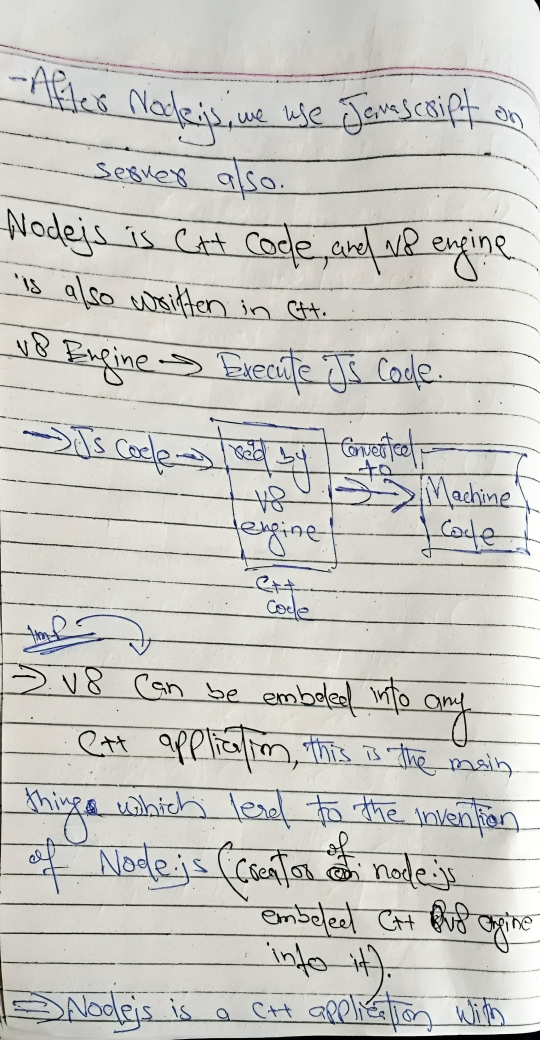 - After Node.js, we use Javascript on
server also.
Nodejs is C++ Code, and V8 engine
is also written in C++.
V8 Engine → Execute Js Code.
→ Js Code → read by V8 engine →→ Converted to Machine Code
C++ code
Imp
⇒ V8 Can be embeded into any
C++ application, this is the main
thing which lead to the invention
of Node.js (Creator of node.js
embeded C++ V8 engine
into it).
⇒ Nodejs is a C++ application with